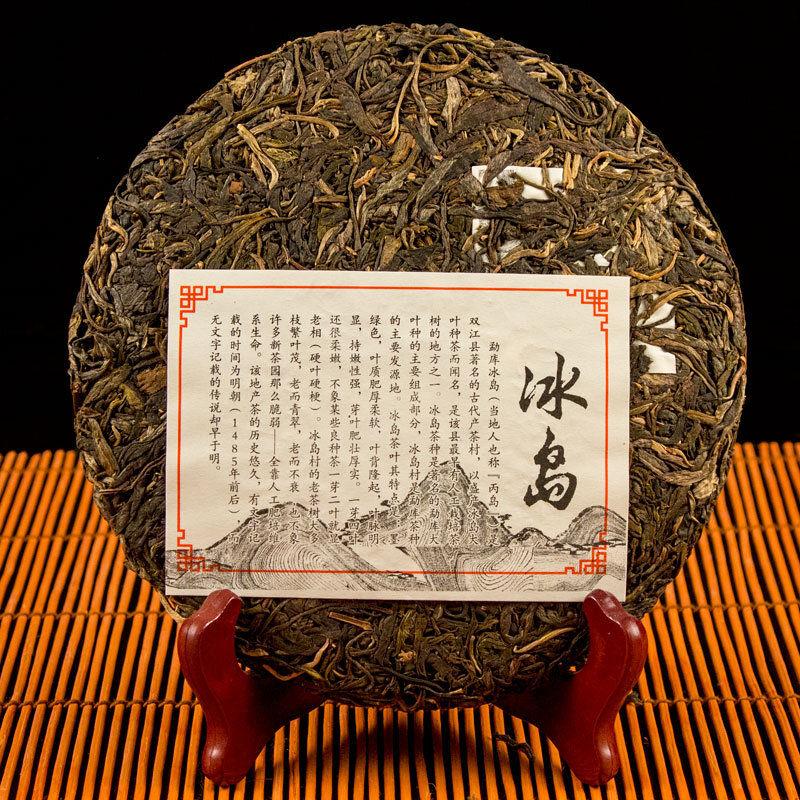 冰岛
勐库冰岛（当地人也称『丙岛』）是
双江县著名的古代产茶村，以盛产冰岛大
叶种茶而闻名，是该县最早有人工栽培茶
树的地方之一。冰岛茶种是著名的勐库大
叶种的主要组成部分，冰岛村是勐库茶种
的主要发源地。冰岛茶叶其特点是：墨
绿色，叶质肥厚柔软，叶背隆起，叶脉明
显，持嫩性强，芽叶肥壮厚实。一芽四叶
还很柔嫩，不象某些良种茶一芽二叶就显
老相（硬叶硬梗）。冰岛村的老茶树大多
枝繁叶茂，老而青翠，老而不衰，也不象
许多新茶园那么脆弱——全靠人工肥培维
系生命。该地产茶的历史悠久，有文字记
栽的时间为明朝（1485年前后），而
无文字记栽的传说却早于明。